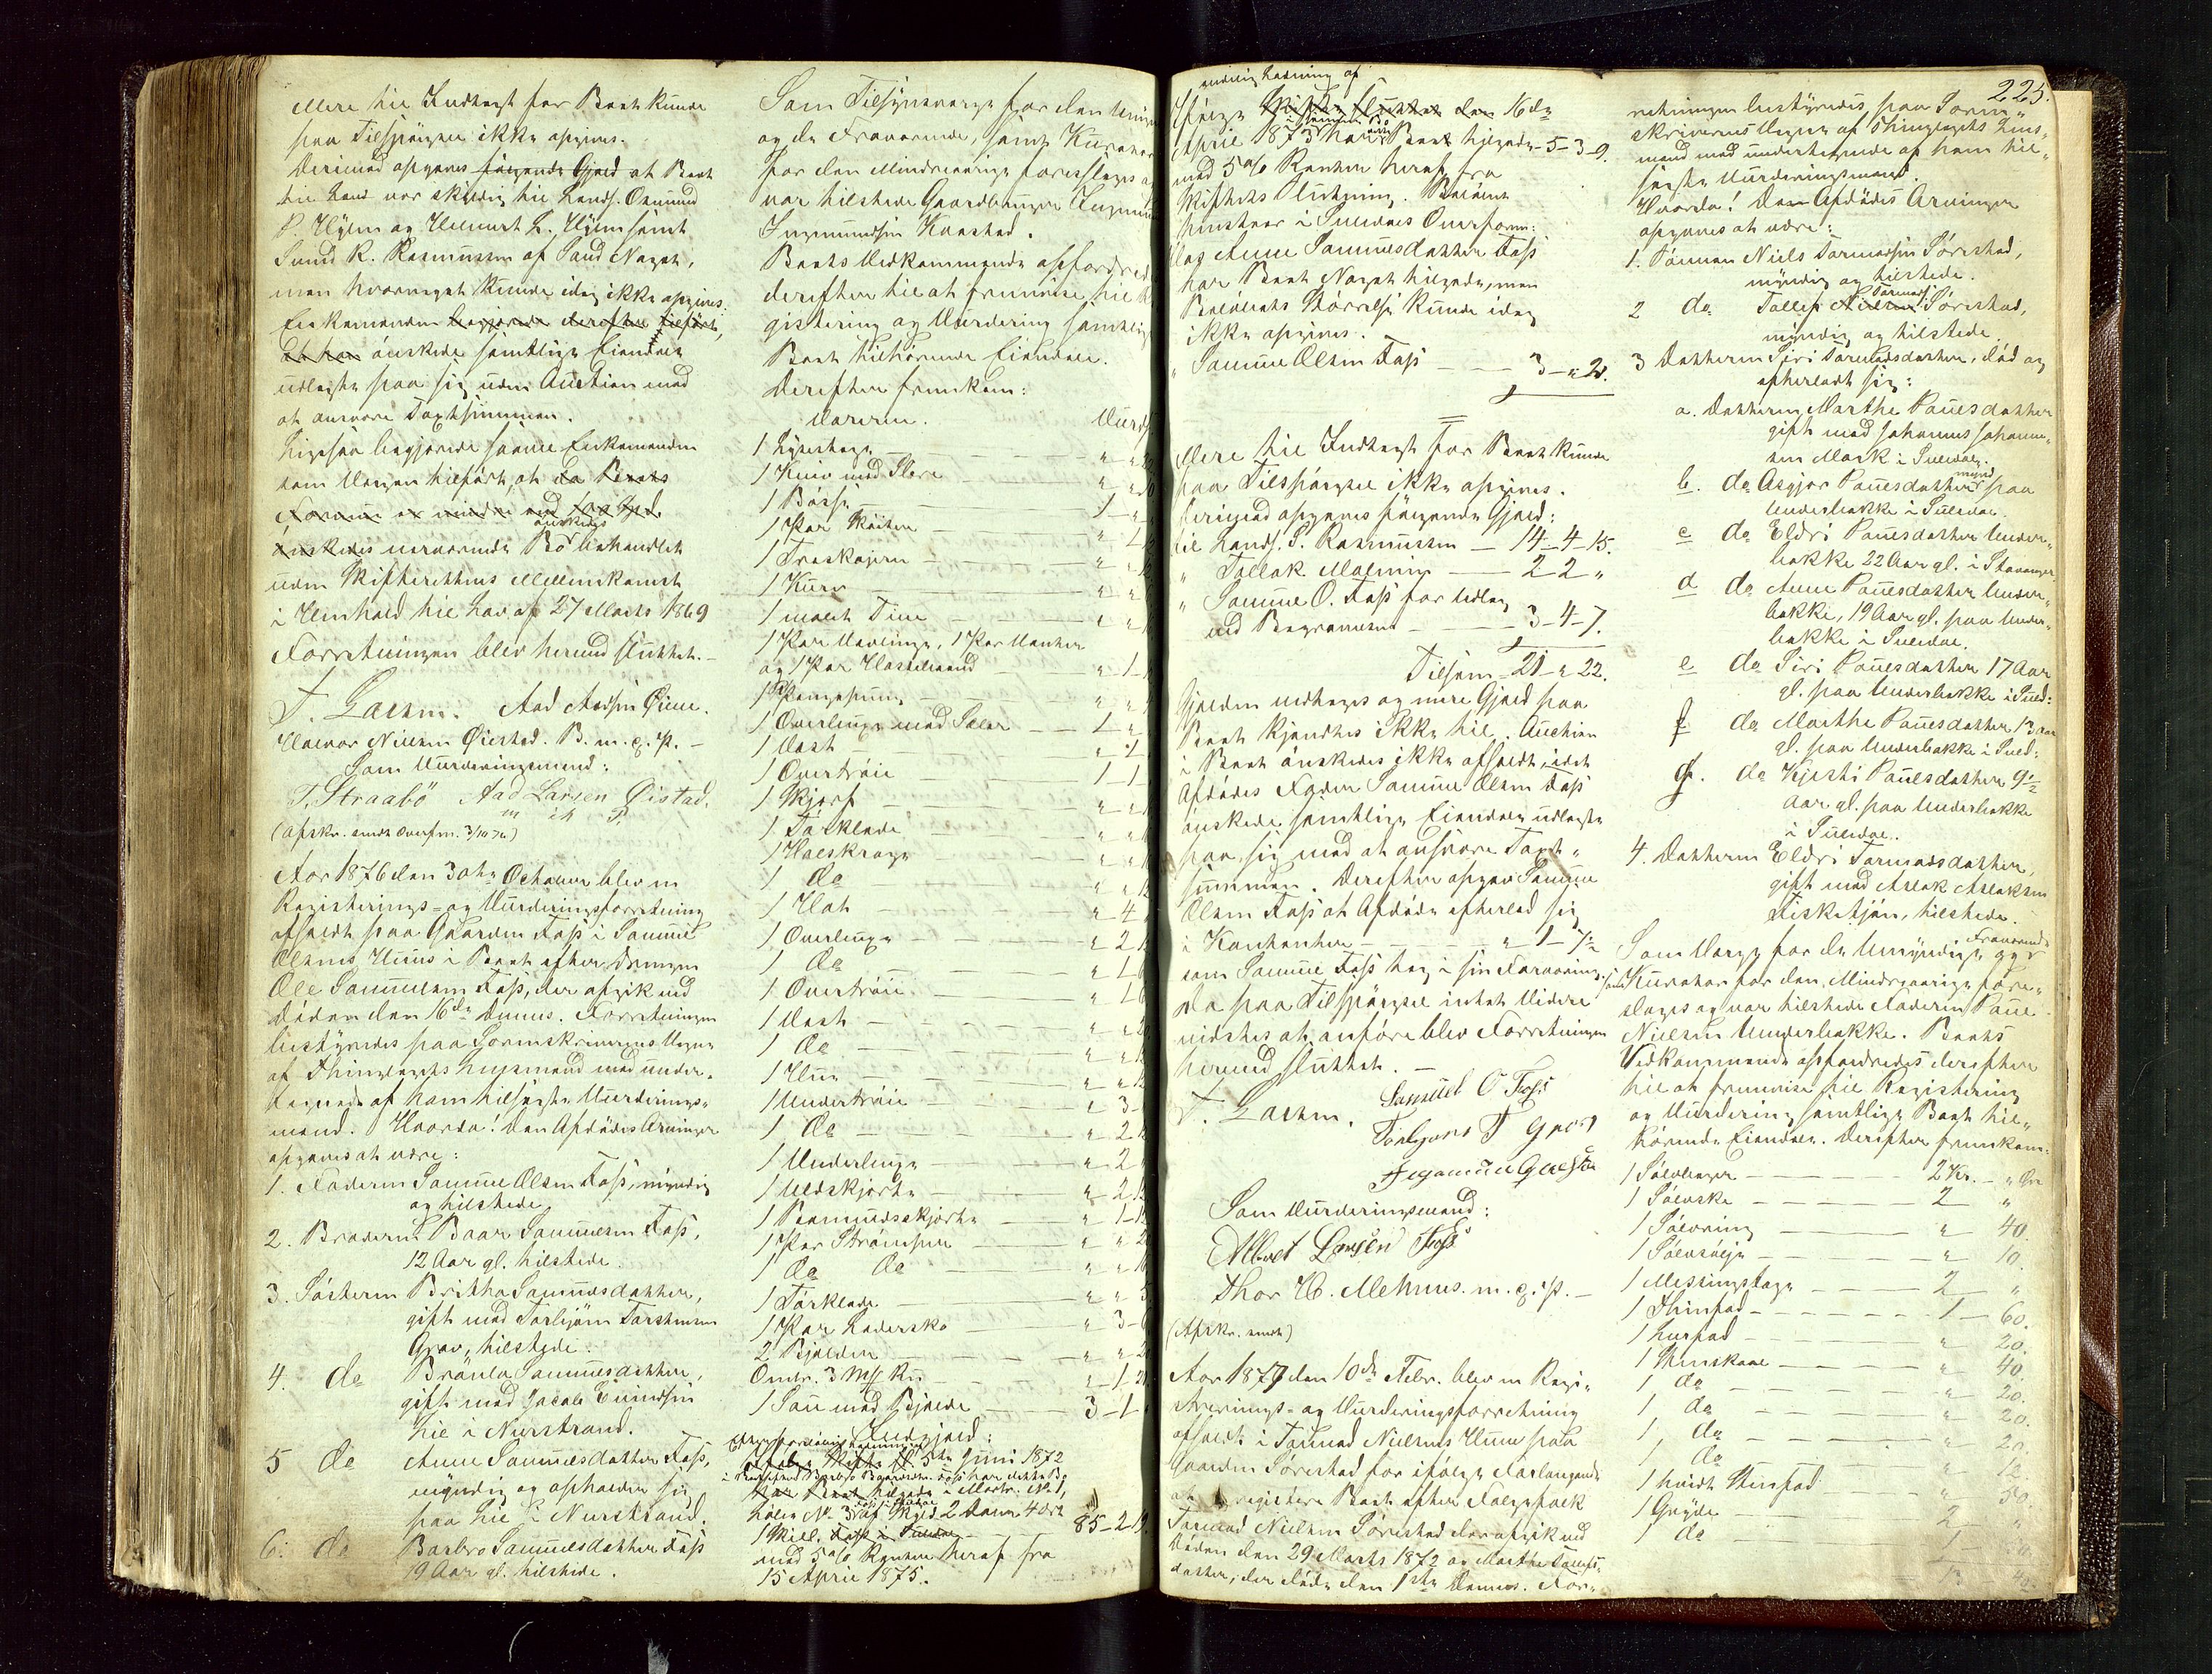 Mere til Indtægt for Boet kunde
paa Tilspørgsel ikke opgives.
Derimod opgaves følgende Gjæld at Boet
til Land var skyldig til Landh. Osmund
P. Hylen og Helmert L. Hylen samt
Svend R. Rasmussen af Sand Noget,
men hvormeget kunde idag ikke opgives.
Enkemanden begjærede derefter tilført,
at han ønskede samtlige Eiendele
udlagte paa sig uden Auction mod
at ansvare Taxtsummen.
Ligesaa begjærede samme Enkemanden
som Værgen tilført, at da Boets
Formue er mindre end
ønskedes nærværende Bo behandlet
uden Skifterettens Mellemkomst
i Henhold til Lov af 27 Marts 1869
Forretningen blev hermed sluttet.
T. Larsen. Aad Aadsen Øiene.
Halvor Nielsen Øiestad. B. m. p. P.
Som Vurderingsmænd:
T. Straabö Aad Larsen Øistad.
m i P.
(Afskr. sendt Overfm. 3/10 76)
Aar 1876 den 30te October blev en
Registerings- og Vurderingsforretning
afholdt paa Gaarden Foss i Samuel
Olsens Huus i Boet efter Drengen
Ole Samuelsen Foss, der afgik ved
Døden den 16de Dennes. Forretningen
bestyredes paa Sorenskriverens Vegne
af Thinglagets Lensmand med under-
tegnede af ham tilsagte Vurderings-
mænd. Hvorda! Den Afdødes Arvinger
opgaves at være:
1. Faderen Samuel Olsen Foss, myndig
og tilstede
2. Broderen Baar Samuelsen Foss,
12 Aar gl. tilstede.
3. Søsteren Britha Samuelsdatter,
gift med Torbjørn Torstensen
Grov, tilstede.
4. do Brønla Samuelsdatter,
gift med Jacob Eivindsen
Hie i Nerstrand.
5 do Anne Samuelsdatter Foss,
myndig og opholder sig
paa Hie i Nerstrand.
6. do Barbro Samuelsdatter Foss
19 Aar gl. tilstede.
Som Tilsynsværge for den
og de Fraværende, samt Kurator
for den Mindreaarige foresloges og
var tilstede Gaardbruger Ingemund
Ingemundsen Kaastad.
Boets Vedkommende opfordredes
derefter til at fremvise til Re
gistering og Vurdering samtlige
Boet tilhørende Eiendele.
Derefter fremkom:
Varerne. Vurds.
1 Lysestage
1 Kniv med Slire
1 Bøsse
1 Par Skøiter
1 Træskrin
1 Kurv
1 malet Tine
1 Par Vævlinge, 1 Par Vanter
og 1 Par Hosebaand
1 Pengepung
1 Overbuxe med Seler
1 Vest
1 Overtrøie
1 Skjerf
1 Tørklæde
1 Halskrage
1 do
1 Hat
1 Overbuxe
1 do
1 Overtrøie
1 Vest
1 do
1 Hue
1 Undertrøie
1 do
1 Underbuxe
1 Uldskjorte
1 Bomuldsskjorte
1 Par Strømper
1 do do
1 Tørklæde
1 Par Lædersko
2 Bjælder
Omtr. 3 Mk Rug
1 Sau med Bjælde 3-1
Indgjæld:
5te Juni 1872
har Boet tilgode i Matr. No 1,
Løbe No 3 af Skyld 2 Daler 4 Ort
85-2-19
med 5% Renter heraf fra
15 April 1875.
225.
endelig Ladning af
Ifølge Skifte sluttet den 16de
April 1873 har Boet tilgode 5-3-9.
med 5% Renter heraf fra
Skiftets Slutning. Beløbet
henstaar i Suledals Overform:
Hos Anne Samuelsdatter Foss
har Boet Noget tilgode, men
Beløbets Størrelse kunde idag
ikke opgives.
" Samuel Olsen Foss 3-"-2.
Mere til Indtægt for Boet kunde
paa Tilspørgsel ikke opgives.
Derimod opgaves følgende Gjæld:
til Landh. S. Rasmussen 14-4-15.
" Tollak Malening 2 2 "
" Samuel O. Foss for Udlæg
ved Begravelsen 3-4-7.
Tilsam. 21-"-22.
Gjælden vedtages og mere Gjæld paa
Boet kjendtes ikke til. Auction
i Boet ønskedes ikke afholdt, idet
Afdødes Fader Samuel Olsen Foss
ønskede samtlige Eiendele udlagte
paa sig mod at ansvare Taxt-
summen. Derefter opgav Samuel
Olsen Foss at Afdøde efterlod sig
i Kontanter " 1-7½
som Samuel Foss tog i sin Forvaring.
Da paa Tilspørgsel intet Videre
vidstes at anføre blev Forretningen
hermed sluttet.
T. Larsen. Samuel O Foss
Torbjørn T Grov
Som Vurderingsmænd:
Albret Larsen Foss
Thor H. Mehuus. m. p. P.
(Afskr. sendt)
Aar 1879 den 10de Febr. blev en Regi-
strerings- og Vurderingsforretning
afholdt i Tormod Nielsens Huus paa
Gaarden Sørestad for ifølge Forlangende
at registere Boet efter Folgefolk
Tormod Nielsen Sørestad der afgik ved
Døden den 29 Marts 1872 og Marthe Tollefs-
datter, der døde den 1ste Dennes. For-
retningen bestyredes paa Soren-
skriverens Vegne af Thinglagets Lens-
mand med undertegnede af ham til-
sagte Vurderingsmænd.
Hvorda! Den Afdødes Arvinger
opgaves at være:
1. Sønnen Niels Tormodsen Sørestad,
myndig og tilstede.
2 do Tollef Nielsen Tormods Sørestad,
myndig og tilstede.
3 Datteren Siri Tormodsdatter, død og
efterladt sig:
a. Datteren Marthe Paulsdatter
gift med Johannes Johanne-
sen Mork i Suledal.
b. do Asgjær Paulsdatter mynd. paa
Underbakke i Suledal.
c do Eldri Paulsdatter Under-
bakke 22 Aar gl. i Stavanger
d do Anne Paulsdatter Under-
bakke, 19 Aar gl. paa Under-
bakke i Suledal.
e do Siri Paulsdatter 17 Aar
gl. paa Underbakke i Suled:
f do Marthe Paulsdatter 13 aar
gl. paa Underbakke i Suled:
g. do Kjersti Paulsdatter 9½
Aar gl. paa Underbakke
i Suledal.
4. Datteren Eldri Tormodsdatter,
gift med Aslak Aslaksen
Fisketjøn, tilstede.
Som Værge for de Umyndige og Fraværende
samt Kurator for den Mindreaarige fore-
sloges og var tilstede Faderen Paul
Nielsen Underbakke. Boets
Vedkommende opfordredes derefter
til at fremvise til Registering
og Vurdering samtlige Boet til-
hørende Eiendele. Derefter fremkom:
1 Sølvbæger 2 Kr. - " Øre
1 Sølvske 2 "
1 Sølvring " 40.
1 Sølvsølje " 10.
1 Messingstage 2 "
1 Steinfad 1-60.
1 Leerfad " 20.
1 Steenskaal " 40.
1 do " 20.
1 do " 20.
1 do " 20.
1 do " 12
1 hvidt Steenfad " 50.
1 Gryde 2 "
1 do